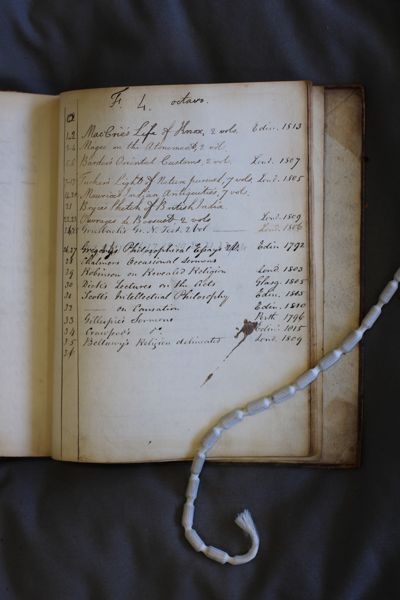 F. 4. octavo.
1-2 MacCrie's Life of Knox, 2 vols. Edin. 1813
3-4 Magee on the Atonement, 2 vol.
5-6 Burder's Oriental Customs, 2 vol. Lond. 1807
Tucker's Light of Nature pursued, 7 vols Lond. 1805
Maurice's Indian Antiquities, 7 vol.
21 Bryce's Sketch of British India
22-23 Ouvrages de Bossuet 2 vols Lond. 1809
24-25 Griesbach's Gr. N. Test. 2 Vol Lond. 1806
26,27 Gregory's Philosophical Essays Edin 1792
28 Chalmers Occasional Sermons
29 Robinson on Revealed Religion Lond 1803
30 Dick's Lectures on the Acts Glasg. 1805
31 Scott's Intellectual Philosophy Edin. 1805
32 —— on Causation Edin. 1810
33 Gillespie's Sermons Perth 1796
34 Crawford's Do. Edin. 1815
35 Bellamy's Religion delineated Lond. 1809
36